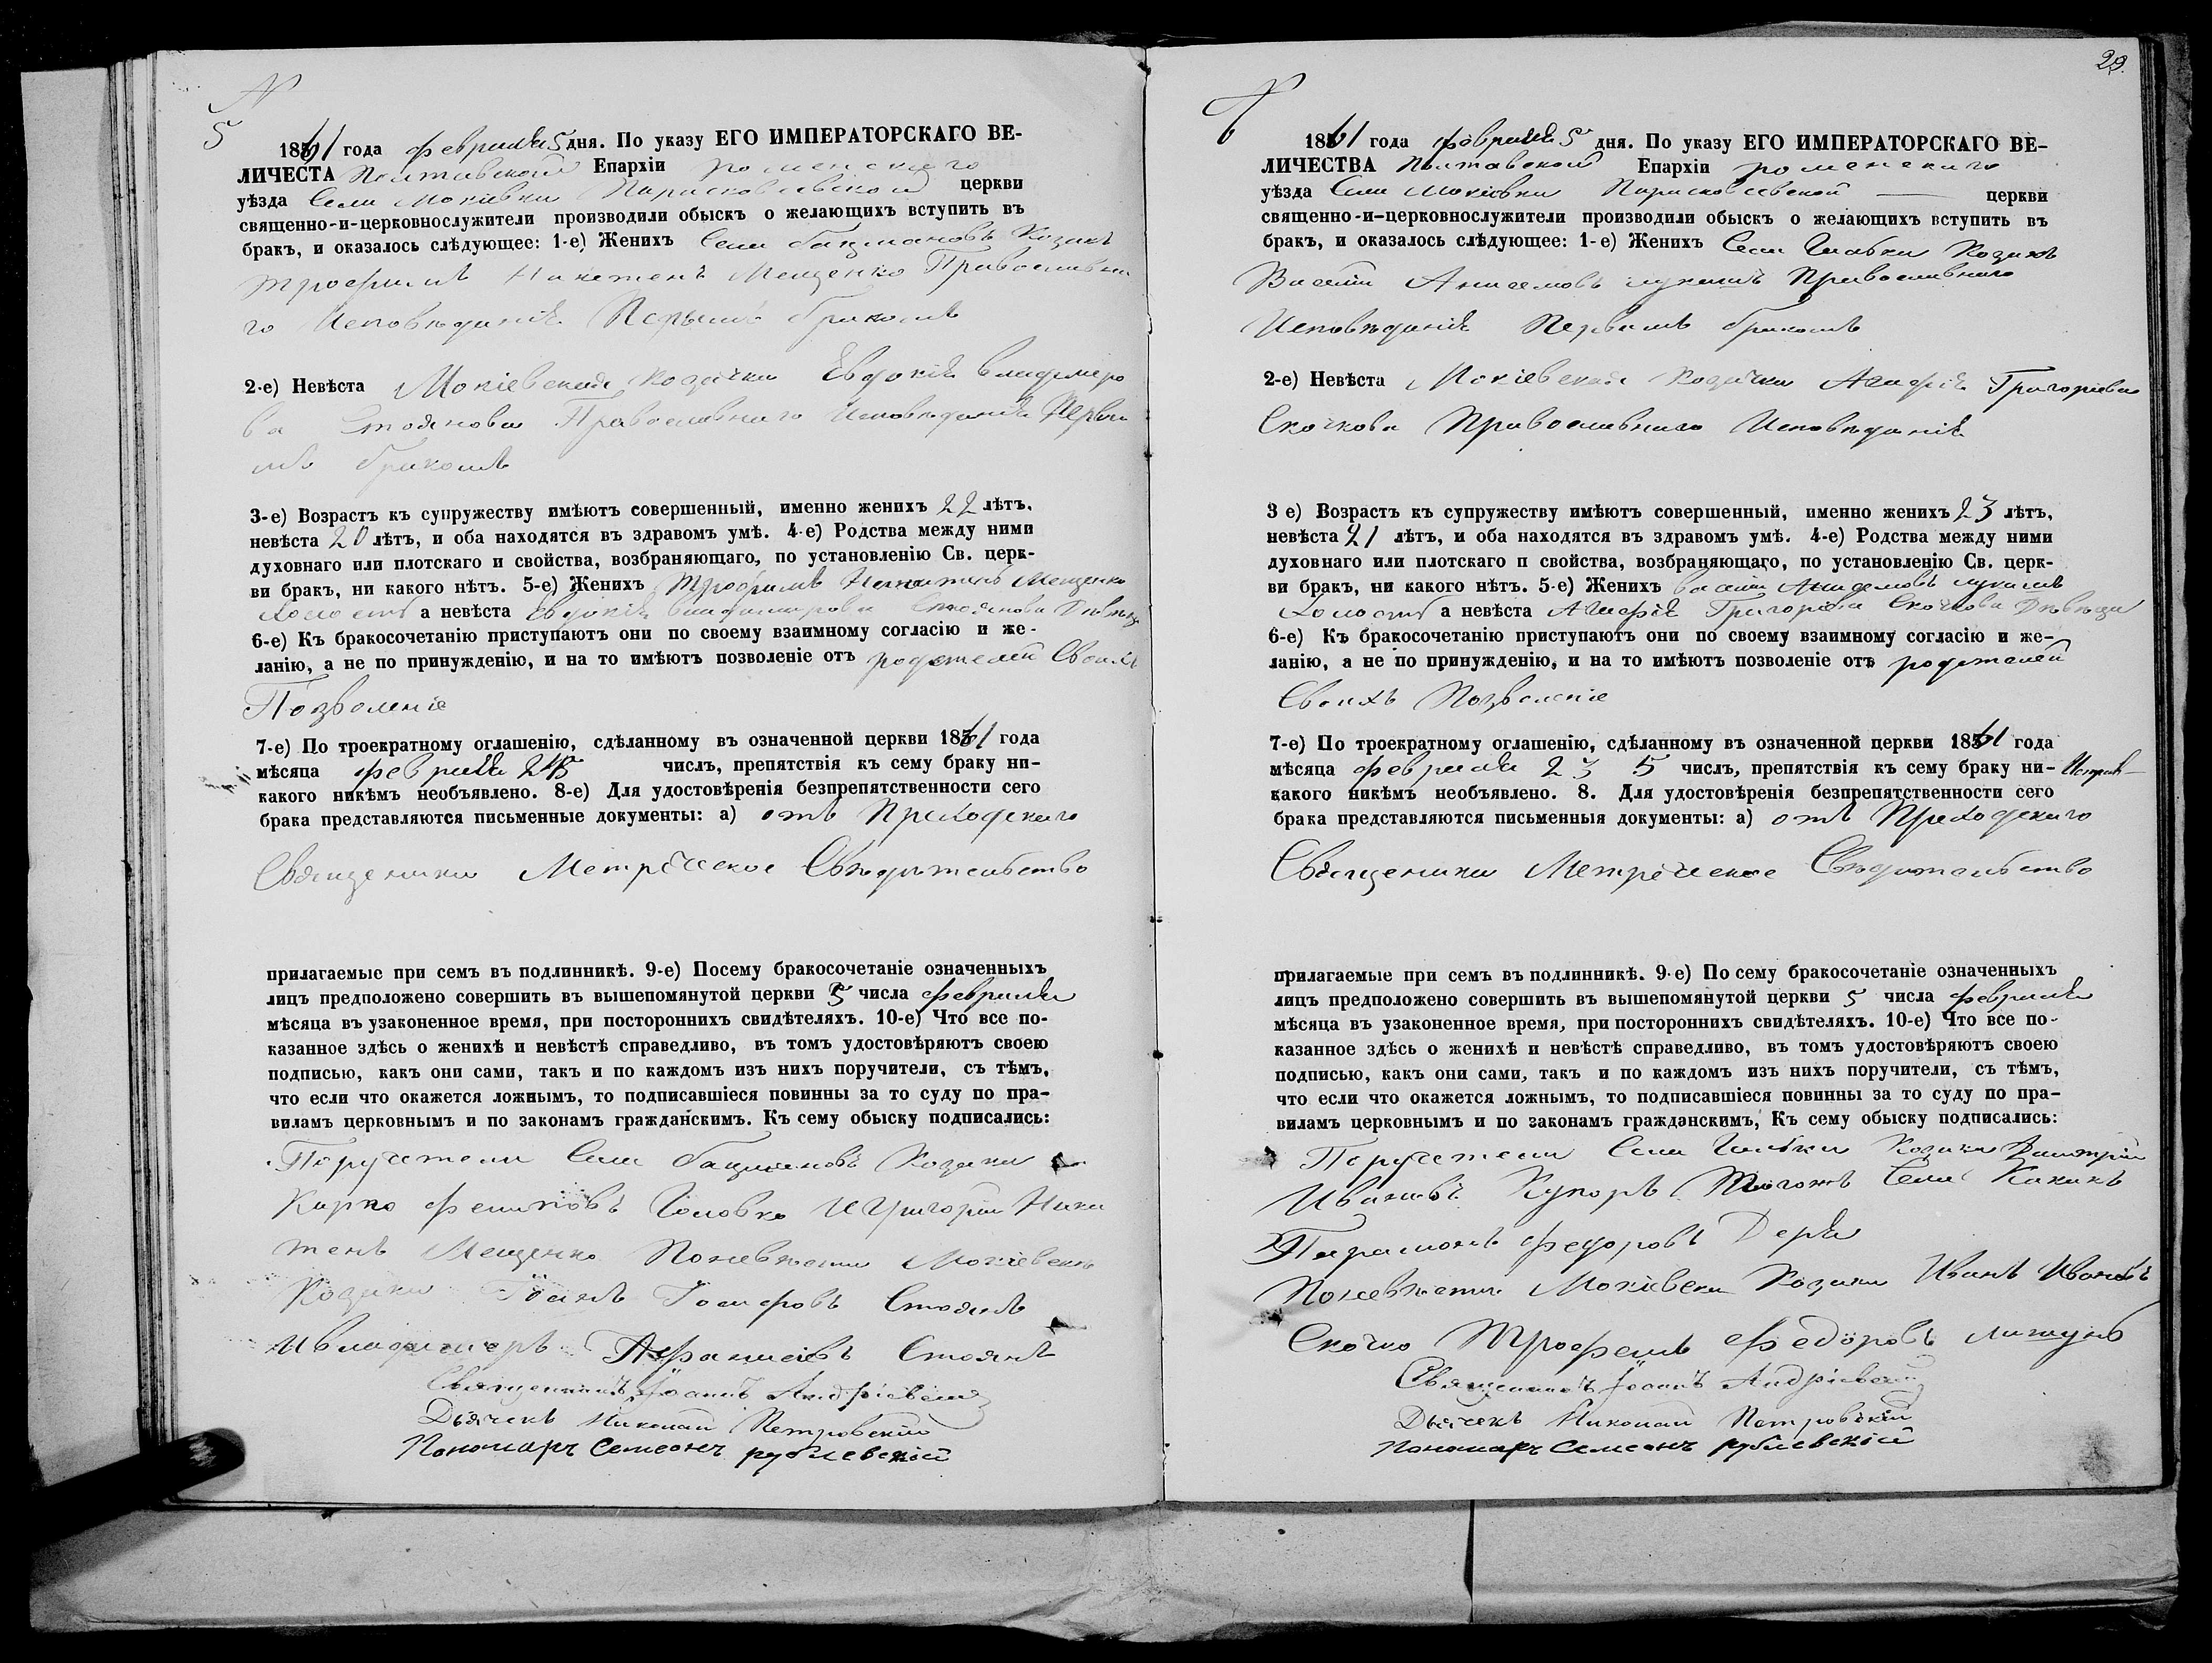 N
5
1861 года февраля 5 дня. По указу ЕГО ИМПЕРАТОРСКАГО ВЕ-
ЛИЧЕСТА Полтавской Епархіи роменского
уѣзда Села Мокіевки Парасковеевской церкви
священно-и-церковнослужители производили обыскъ о желающихъ вступить въ
бракъ, и оказалось слѣдующее: 1-е) Женихъ Села Бацмановъ Козакъ
Трофимъ Никитенъ Мещенко Православна
го Исповѣданія Первымъ бракомъ
2-е) Невѣста Мокіевская козачка Евдокія владимеро
ва Стоянова Православнаго исповѣданія Первы
мъ бракомъ
3-е) Возрастъ къ супружеству имѣютъ совершенный, именно женихъ 22 лѣтъ.
невѣста 20 лѣтъ, и оба находятся въ здравомъ умѣ. 4-е) Родства между ними
духовнаго или плотскаго и свойства, возбраняющаго, по установленію Св. церк-
ви бракъ, ни какого нѣтъ. 5-е) Женихъ Трофимъ Никитинъ Мещенко
Холостъ а невѣста Евдокія владимирова Стоянова Дѣвица
6-е) Къ бракосочетанію приступаютъ они по своему взаимному согласію и же-
ланію, а не по принужденію, и на то имѣютъ позволеніе отъ родетелей Своихъ
Позволеніе
7-е) По троекратному оглашенію, сдѣланному въ означенной церкви 1861 года
мѣсяца февраля числъ, препятствія къ сему браку ни-
какого никѣмъ необъявлено. 8-е) Для удостовѣренія безпрепятственности сего
брака представляются письменные документы: а) отъ Преходскаго
Священика Метрческое Свѣдѣтельство
прилагаемые при семъ въ подлинникѣ. 9-е) Посему бракосочетаніе означенныхъ
лицъ предположено совершить въ вышепомянутой церкви 5 числа февраля
мѣсяца въ узаконенное время, при постороннихъ свидѣтеляхъ. 10-е) Что все по-
казанное здѣсь о женихѣ и невѣстѣ справедливо, въ томъ удостовѣряютъ своею
подписью, какъ они сами, такъ и по каждомъ изъ нихъ поручители, съ тѣмъ,
что если что окажется ложнымъ, то подписавшіеся повинны за то суду по пра-
виламъ церковнымъ и по законамъ гражданскимъ. Къ сему обыску подписались:
Поручетели Села бацмановъ Козаки
Карпо Головко И Григорій Ники
тенъ Мещенко Поневѣсти Мокіевскъ
Козаки Іоанъ Іосифовъ Стоянъ
И владимеръ Афанасіевъ Стоянъ
Священникъ Іоаннъ Андріевскій
Дьячекъ Николай Петровскій
Пономарь Семеонъ рублевскій
29.
6
1861 года февраля 5 дня. По указу ЕГО ИМПЕРАТОРСКАГО ВЕ-
ЛИЧЕСТВА Полтавской Епархіи роменскаго
уѣзда Села Мокіевки Парасковеевской церкви
священно-и-церковнослужители производили обыскъ о желающихъ вступить въ
бракъ, и оказалось слѣдующее: 1-е) Женихъ Села Козакъ
Василій Анисемовъ Православнаго
Исповѣданія Первымъ бракомъ
2-е) Невѣста Мокіевская Козачка Агафія Григоріева
Скочкова Православнаго Исповѣданія
3 е) Возрастъ къ супружеству имѣютъ совершенный, именно женихъ 23 лѣтъ,
невѣста 21 лѣтъ, и оба находятся въ здравомъ умѣ. 4-е) Родства между ними
духовнаго или плотскаго п свойства, возбраняющаго, по установленію Св. церк-
ви бракъ, ни какого нѣтъ. 5-е) Женихъ василій Анисемовъ
Холостъ а невѣста Агафія Григорева Скочкова Дѣвица
6-е) Къ бракосочетанію приступаютъ они по своему взаимному согласію и же-
ланію, а не по принужденію, и на то имѣютъ позволеніе отъ родетелей
Своихъ Позволеніе
7-е) По троекратному оглашенію, сдѣланному въ означенной церкви 1861 года
мѣсяца февраля 2 3 5 числъ, препятствія къ сему браку ни-
какого никѣмъ необъявлено. 8. Для удостовѣренія безпрепятственности сего
брака представляются письменныя документы: а) отъ Преходскаго
Священика Метрческое Свѣдѣтельство
прилагаемые при семъ въ подлинникѣ. 9-е) По сему бракосочетаніе означенныхъ
лицъ предположено совершить въ вышепомянутой церкви 5 числа февраля
мѣсяца въ узаконенное время, при постороннихъ свидѣтеляхъ. 10-е) Что все по-
казанное здѣсь о женихѣ и невѣстѣ справедливо, въ томъ удостовѣряютъ своею
подписью, какъ они сами, такъ и по каждомъ изъ нихъ поручители, съ тѣмъ,
что если что окажется ложнымъ, то подписавшіеся повинны за то суду по пра-
виламъ церковнымъ и по законамъ гражданскимъ, Къ сему обыску подписались:
Поручетели Села Козаки Дмитрій
Ивановъ Купоръ
Парамонъ Федоровъ Дерка
Поневѣсти Мокіевски Козаки Иванъ Ивановъ
Скочко Трофемъ Федоровъ
Священникъ Іоаннъ Андріевскій
Дьячекъ Николай Петровскій
Пономарь Семеонъ рублевскій